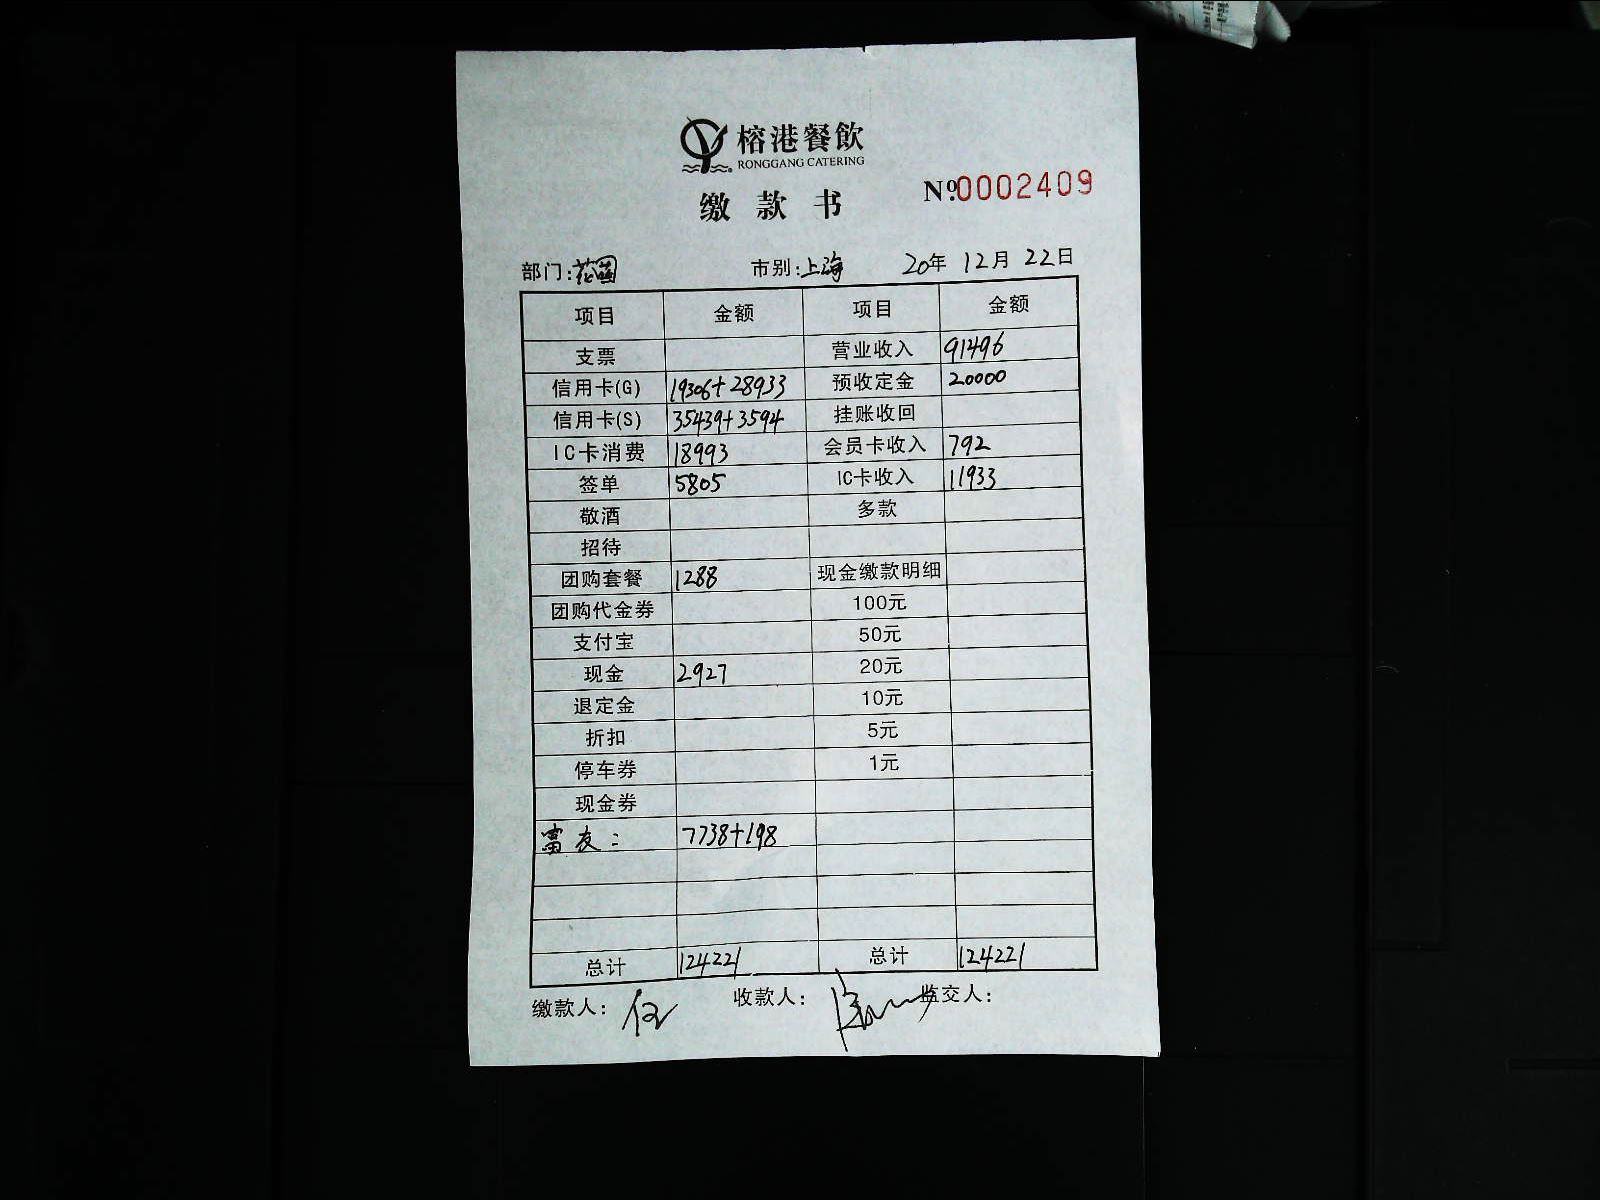 榕港餐飲
RONGGANG CATERING
缴款书
Nº.0002409
部门:花园 市别:上海 20年 12月 22日
项目 金额 项目 金额
支票 营业收入 91496
信用卡(G) 19306+28933 预收定金 20000
信用卡(S) 35439+3594 挂账收回
IC卡消费 18993 会员卡收入 792
签单 5805 IC卡收入 11933
敬酒 多款
招待
团购套餐 1288 现金缴款明细
团购代金券 100元
支付宝 50元
现金 2927 20元
退定金 10元
折扣 5元
停车券 1元
现金券
富友: 7738+198
总计 124221 总计 124221
缴款人: 收款人: 监交人: